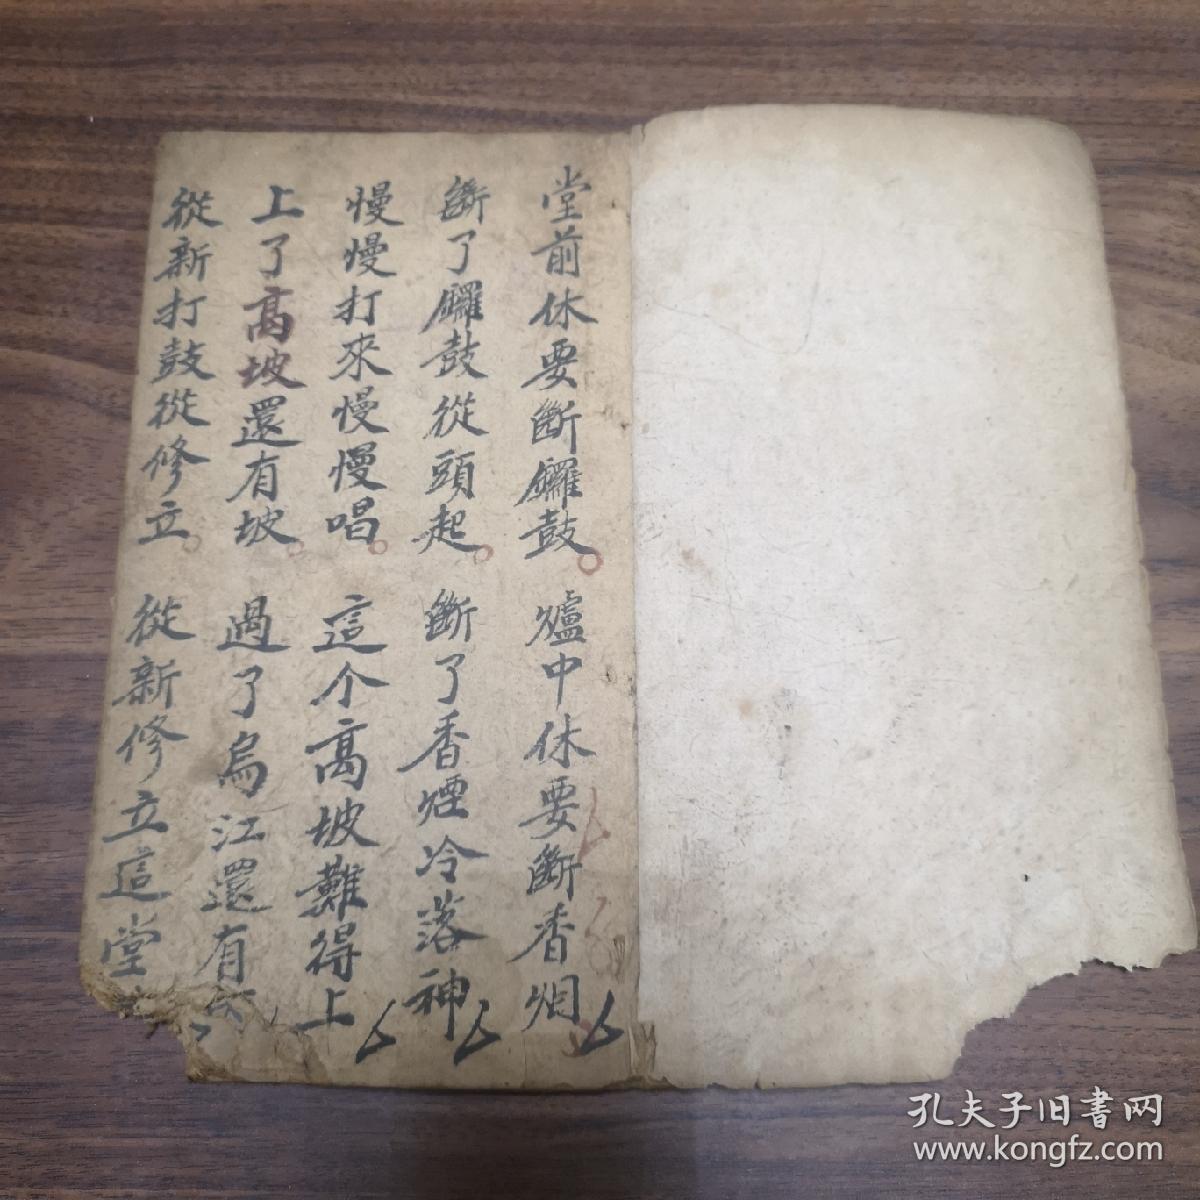 堂前休要斷鑼鼓。爐中休要斷香烟
斷了鑼鼓從頭起。斷了香煙冷落神
慢慢打來慢慢唱。這个高坡難得上
上了高坡還有坡。過了烏江還有
從新打鼓從修立。從新修立這堂
孔夫子旧書网
www.kongfz.com